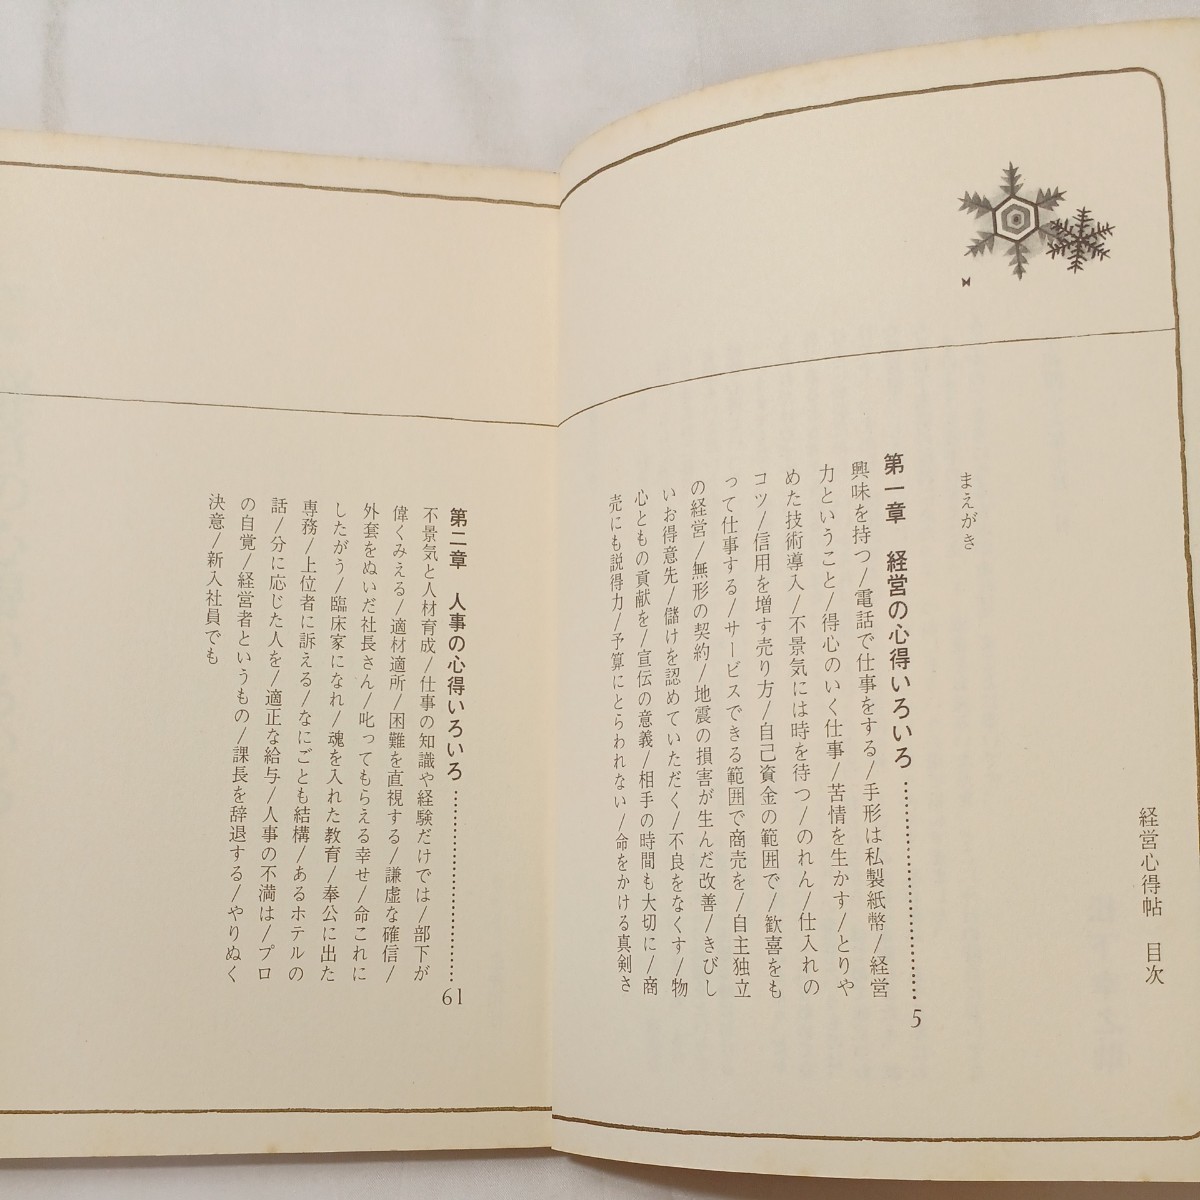 経営心得帖　目次
まえがき
第一章　経営の心得いろいろ…………………………5
興味を持つ/電話で仕事をする/手形は私製紙幣/経営
力ということ/得心のいく仕事/苦情を生かす/とりや
めた技術導入/不景気には時を待つ/のれん/仕入れの
コツ/信用を増す売り方/自己資金の範囲で/歓喜をも
って仕事する/サービスできる範囲で商売を/自主独立
の経営/無形の契約/地震の損害が生んだ改善/きびし
いお得意先/儲けを認めていただく/不良をなくす/物
心ともの貢献を/宣伝の意義/相手の時間も大切に/商
売にも説得力/予算にとらわれない/命をかける真剣さ
第二章　人事の心得いろいろ…………………………61
不景気と人材育成/仕事の知識や経験だけでは/部下が
偉くみえる/適材適所/困難を直視する/謙虚な確信/
外套をぬいだ社長さん/叱ってもらえる幸せ/命これに
したがう/臨床家になれ/魂を入れた教育/奉公に出た
専務/上位者に訴える/なにごとも結構/あるホテルの
話/分に応じた人を/適正な給与/人事の不満は/プロ
の自覚/経営者というもの/課長を辞退する/やりぬく
決意/新入社員でも